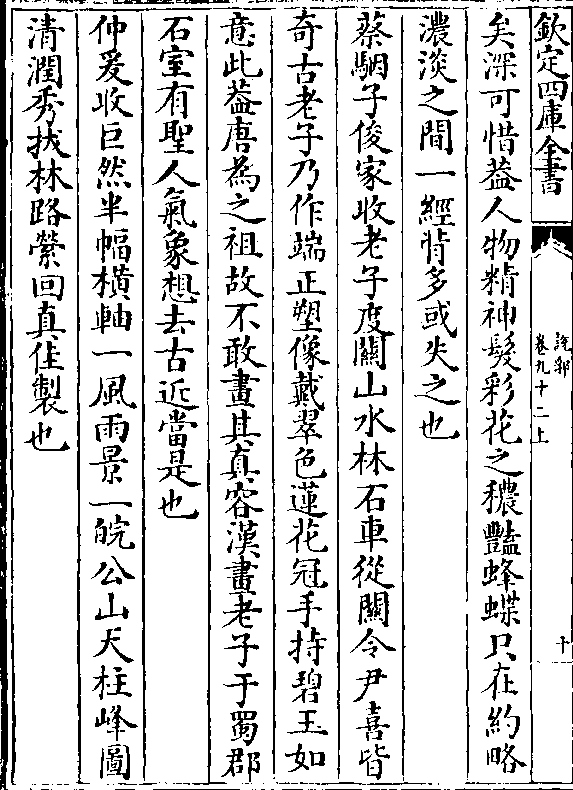 欽定四庫全書
說郛
卷九十二上
十
矣深可惜葢人物精神髮彩花之穠豔蜂蝶只在約略
濃淡之間一經背多或失之也
蔡駰子俊家收老子度關山水林石車從關令尹喜皆
奇古老子乃作端正塑像戴翠色蓮花冠手持碧玉如
意此葢唐為之祖故不敢畫其真容漢畫老子于蜀郡
石室有聖人氣象想去古近當是也
仲爰收巨然半幅橫軸一風雨景一皖公山天柱峰圖
清潤秀拔林路縈回真佳製也